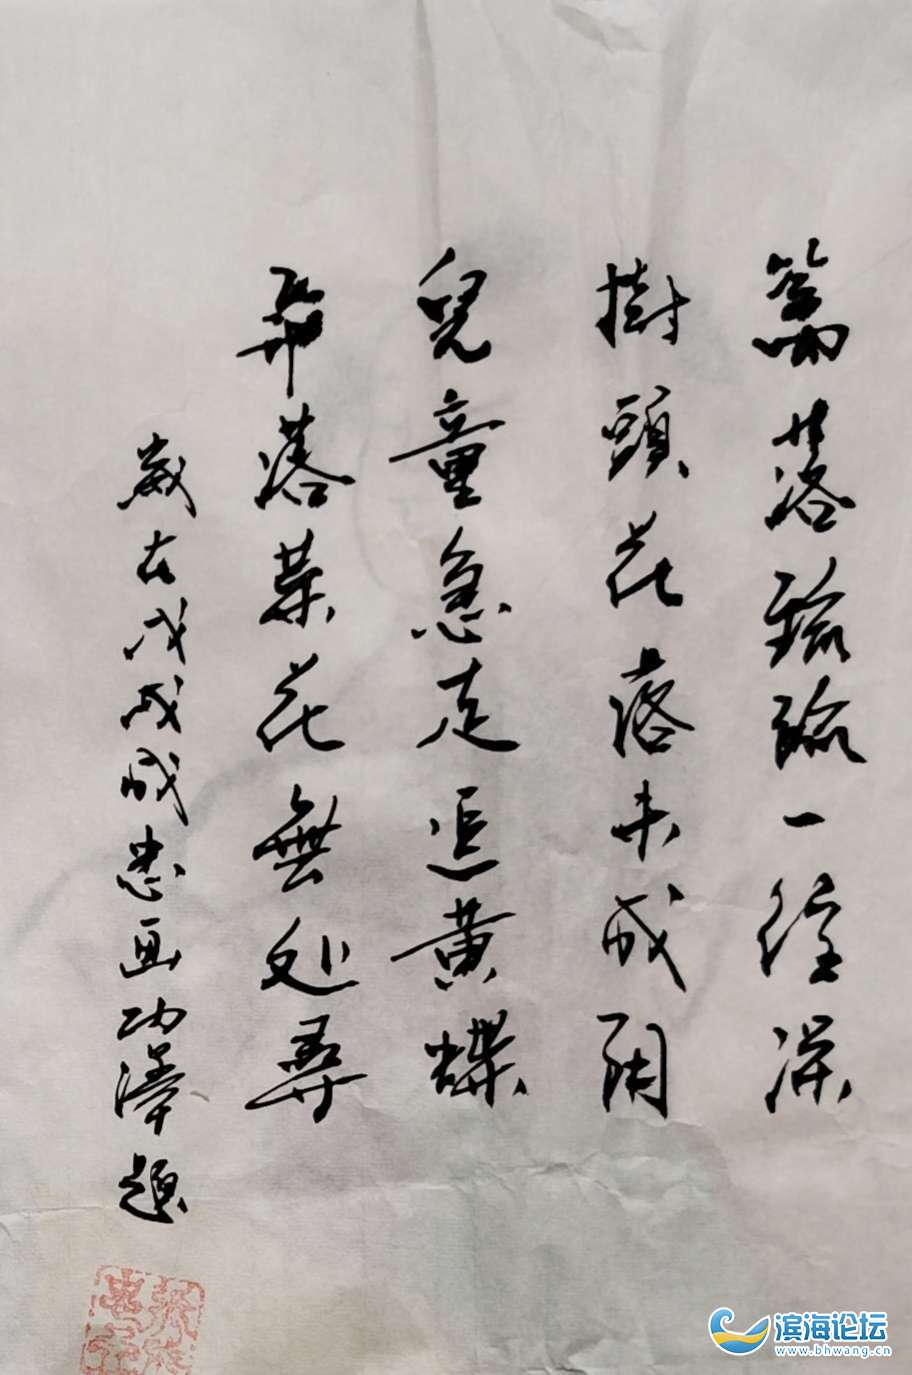 篱落疏疏一径深
樹頭花落未成阴
兒童急走追黄蝶
飛落菜花無处尋
歲在戊戌成忠画功澤題
滨海论坛
www.bhwang.cn